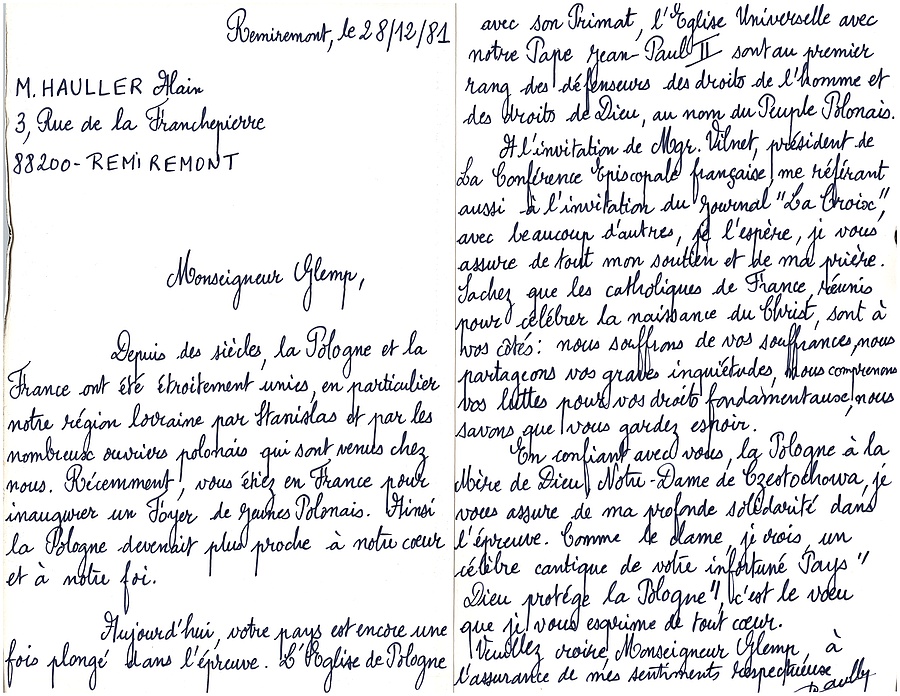 Remiremont, le 28/12/81
M. HAULLER Alain
3, Rue de la Franchepierre
88200 - REMIREMONT
Monseigneur Glemp,
Depuis des siècles, la Pologne et la
France ont été étroitement unies, en particulier
notre région lorraine par Stanislas et par les
nombreux ouvriers polonais qui sont venus chez
nous. Récemment, vous étiez en France pour
inaugurer un Foyer de jeunes Polonais. Ainsi
la Pologne devenait plus proche à notre cœur
et à notre foi.
Aujourd'hui, votre pays est encore une
fois plongé dans l'épreuve. L'Eglise de Pologne
avec son Primat, l'Eglise Universelle avec
notre Pape Jean-Paul II sont au premier
rang des défenseurs des droits de l'homme et
des droits de Dieu, au nom du Peuple Polonais.
A l'invitation de Mgr. Vilnet, président de
La Conférence Episcopale française, me référant
aussi à l'invitation du journal "La Croix",
avec beaucoup d'autres, je l'espère, je vous
assure de tout mon soutien et de ma prière.
Sachez que les catholiques de France, réunis
pour célébrer la naissance du Christ, sont à
vos côtés : nous souffrons de vos souffrances, nous
partageons vos graves inquiétudes, nous comprenons
vos luttes pour vos droits fondamentaux, nous
savons que vous gardez espoir.
En confiant avec vous, la Pologne à la
Mère de Dieu, Notre-Dame de Czestochowa, je
vous assure de ma profonde solidarité dans
l'épreuve. Comme le clame, je crois, un
célèbre cantique de votre infortuné Pays "
Dieu protége la Pologne", c'est le vœu
que je vous exprime de tout cœur.
Veuillez croire, Monseigneur Glemp, à
l'assurance de mes sentiments respectueux